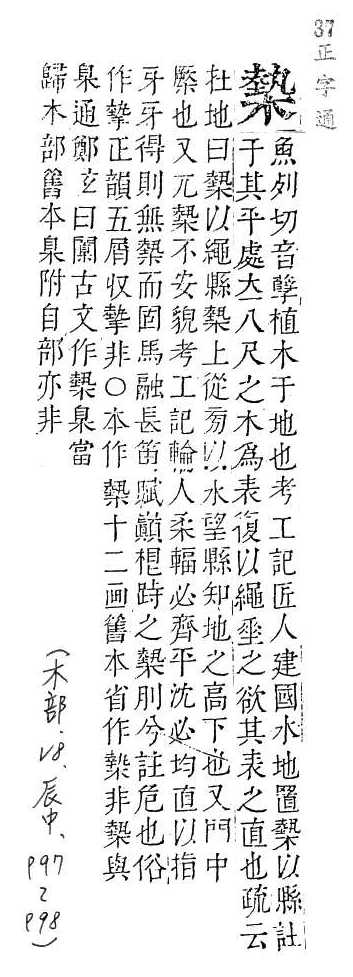 37正字通
槷魚列切音孼植木于地也考工記匠人建國水地置槷以縣註
于其平處大八尺之木爲表復以繩垂之欲其表之直也疏云
杜地曰槷以繩縣槷上從旁以水望縣知地之高下也又門中
橜也又兀槷不安貌考工記輪人柔輻必齊平沈必均直以指
牙牙得則無槷而固馬融長笛賦巓梠跱之槷刖兮註危也俗
作摯正韻五屑収摯非○本作槷十二画舊本省作槷非槷與
臬通鄭玄曰闑古文作槷臬當
歸木部舊本臬附自部亦非
(木部.28、辰中、P97~P98)